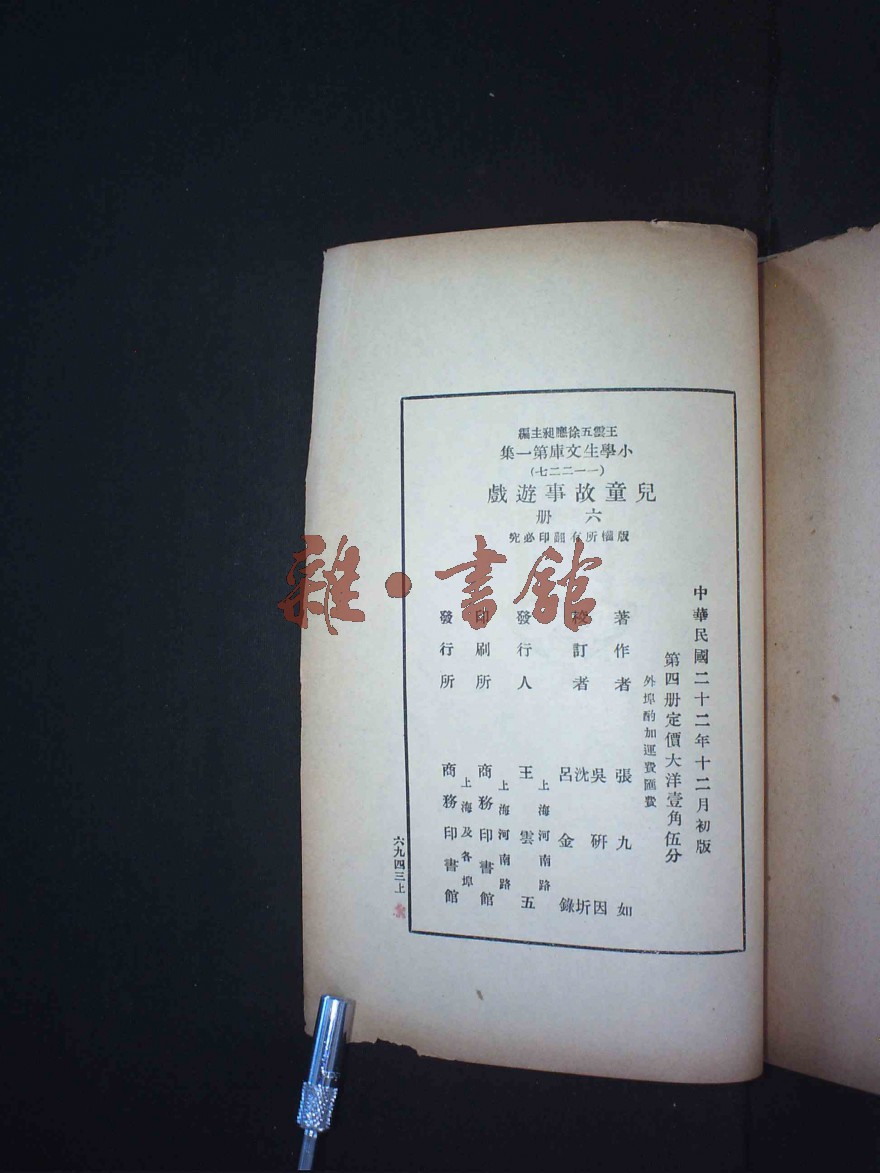 王雲五徐應昶主編
小學生文庫第一集
(一一二二七)
兒童故事遊戲
六册
版權所有翻印必究
中華民國二十二年十二月初版
第四册定價大洋壹角伍分
外埠酌加運費匯費
著作者 張九如
校訂者 吳研因 沈圻 呂金錄
發行人 上海河南路 王雲五
印刷所 上海河南路 商務印書館
發行所 上海及各埠 商務印書館
六九四三上
雜·書館